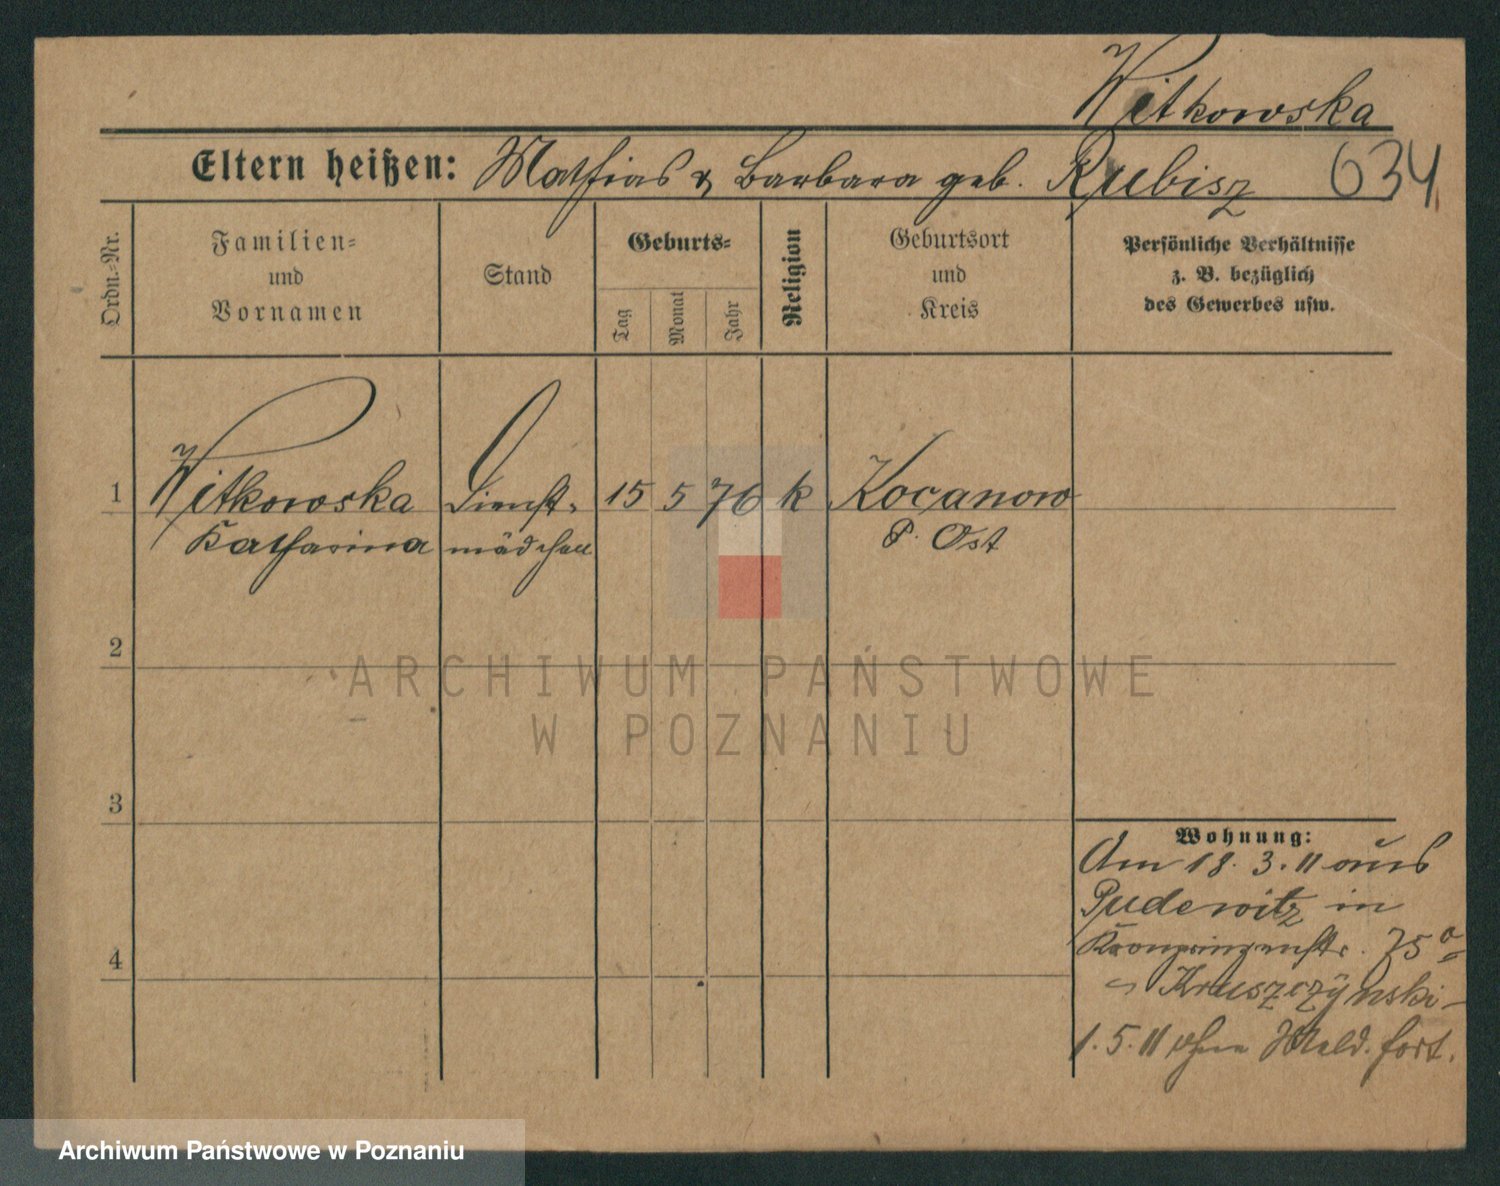 Witkowska
Eltern heißen: Mathias & Barbara geb. Rubisz 634
Ordn.-Nr.
Familien-
und
Vornamen
Stand
Geburts-
Tag
Monat
Jahr
Religion
Geburtsort
und
Kreis
Persönliche Verhältnisse
z. B. bezüglich
des Gewerbes usw.
1 Witkowska Dienst- 15 5 76 k Kocanowo
Katharina mädchen P. Ost
2
3
4
Wohnung:
Am 18. 3. 11 aus
Pudewitz in
Kronprinzenstr. 75a
Kruszczynski
1. 5. 11 ohne Meld. fort.
ARCHIWUM PAŃSTWOWE
W POZNANIU
Archiwum Państwowe w Poznaniu